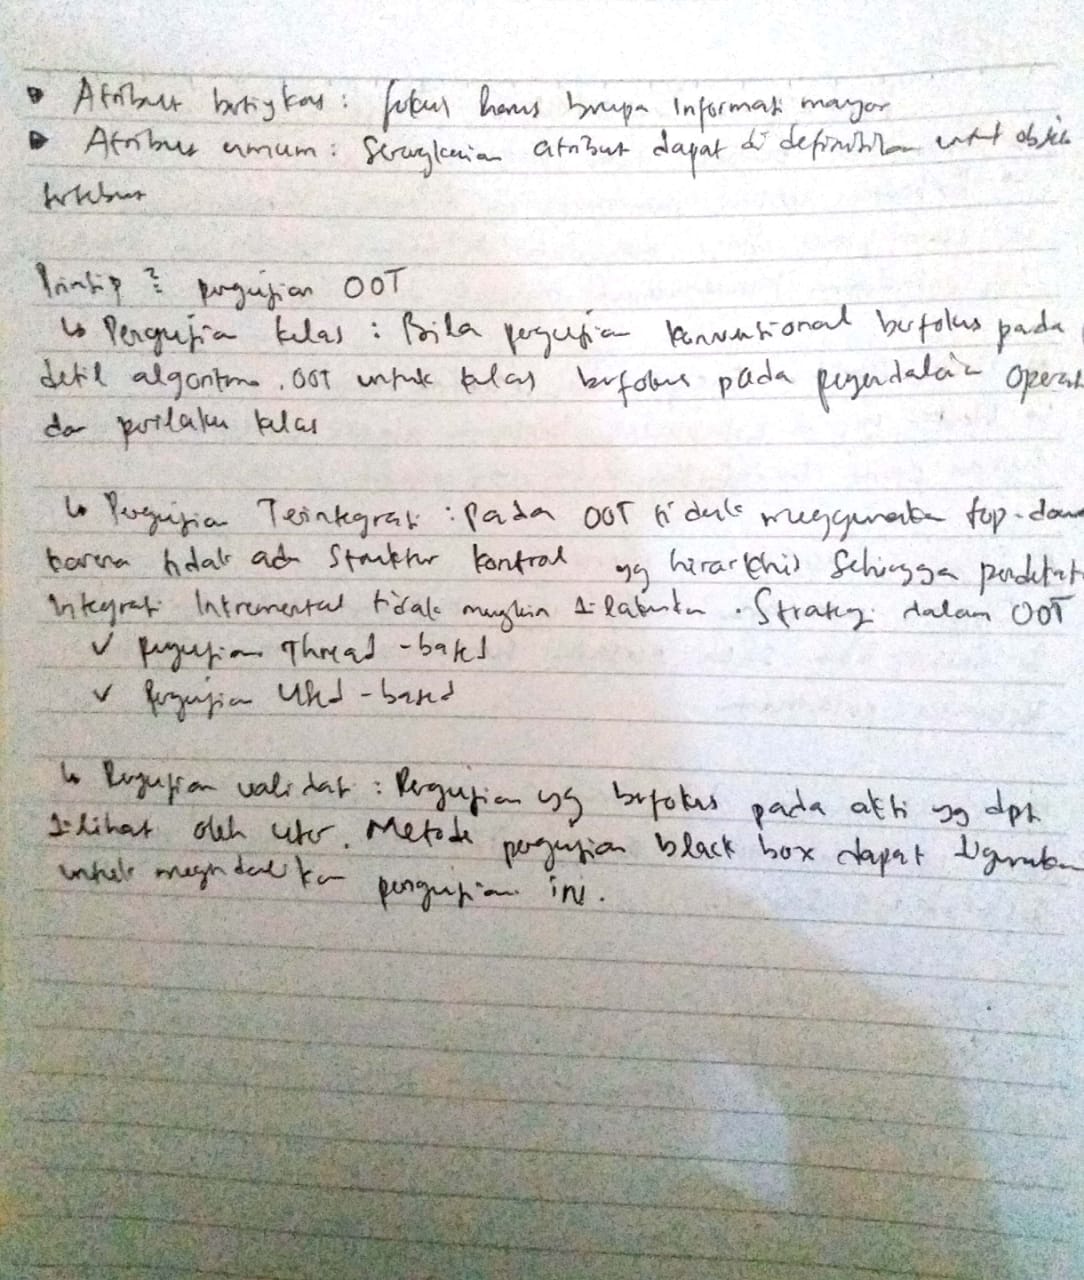 ▶ Atribut bertingkat: fokus harus berupa Informasi mayor
▶ Atribut umum: Serangkaian atribut dapat di definisikan untuk objek
tersebut
Prinsip ² pengujian OOT
↳ Pengujian kelas: Bila pengujian konvensional berfokus pada
detil algoritma, OOT untuk kelas berfokus pada pengendalian Operasi
dan perilaku kelas
↳ Pengujian Terintegrasi: Pada OOT tidak menggunakan top-down
karena tidak ada Struktur kontrol yg hirarkhis Sehingga pendekatan
Integrasi Inkremental tidak mungkin dilakukan. Strategi dalam OOT
✓ pengujian Thread-based
✓ Pengujian Used-based
↳ Pengujian validasi: Pengujian yg berfokus pada aksi yg dpt
dilihat oleh user. Metode pengujian black box dapat digunakan
untuk pengujian ini.